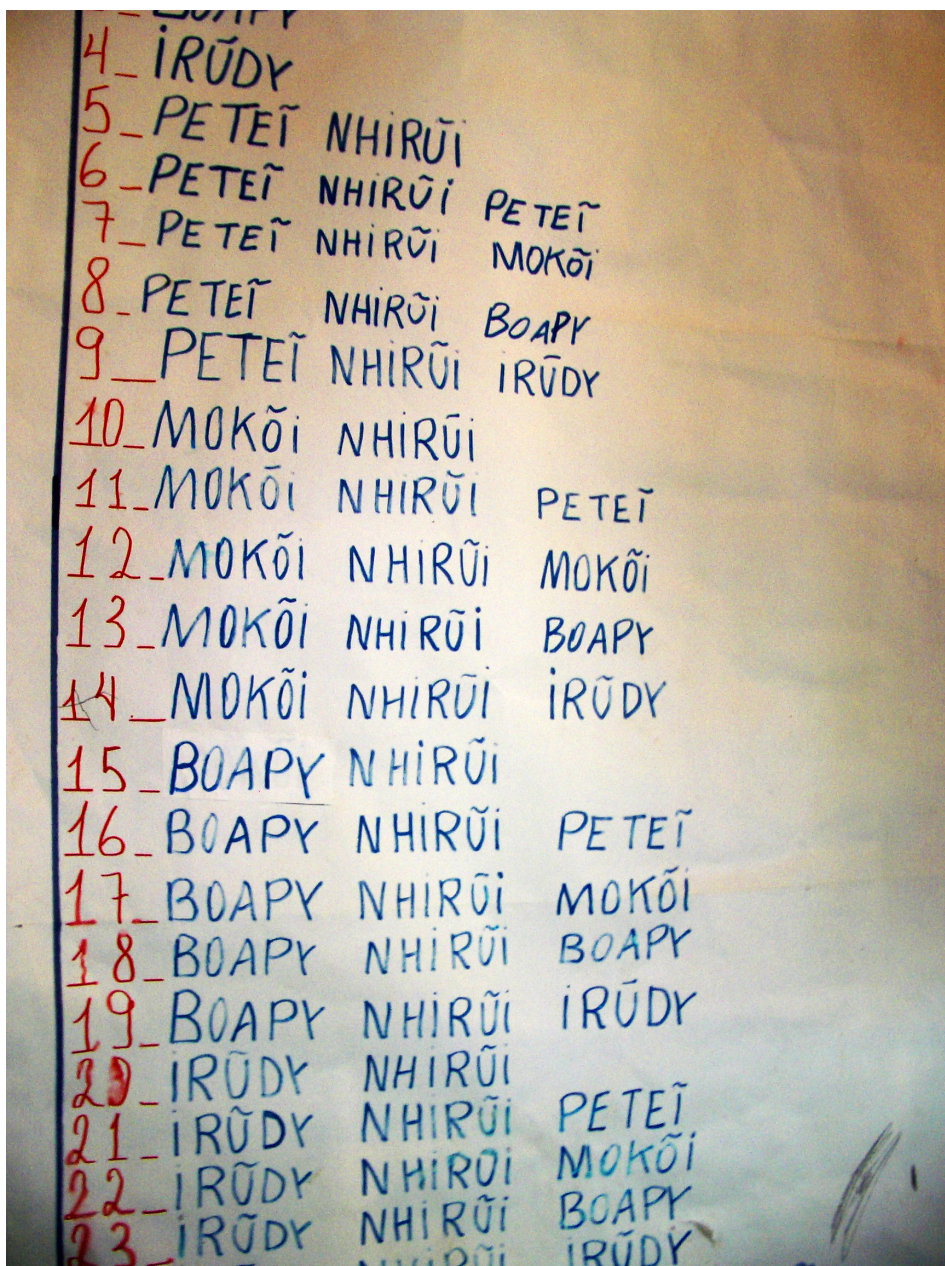 BOAPY
4_IRŨDY
5_PETEĨ NHIRŨI
6_PETEĨ NHIRŨI PETEĨ
7_PETEĨ NHIRŨI MOKÕI
8_PETEĨ NHIRŨI BOAPY
9_PETEĨ NHIRŨI IRŨDY
10_MOKÕI NHIRŨI
11_MOKÕI NHIRŨI PETEĨ
12_MOKÕI NHIRŨI MOKÕI
13_MOKÕI NHIRŨI BOAPY
14_MOKÕI NHIRŨI IRŨDY
15_BOAPY NHIRŨI
16_BOAPY NHIRŨI PETEĨ
17_BOAPY NHIRŨI MOKÕI
18_BOAPY NHIRŨI BOAPY
19_BOAPY NHIRŨI IRŨDY
20_IRŨDY NHIRŨI
21_IRŨDY NHIRŨI PETEĨ
22_IRŨDY NHIRŨI MOKÕI
23_IRŨDY NHIRŨI BOAPY
NHIRŨI IRŨDY